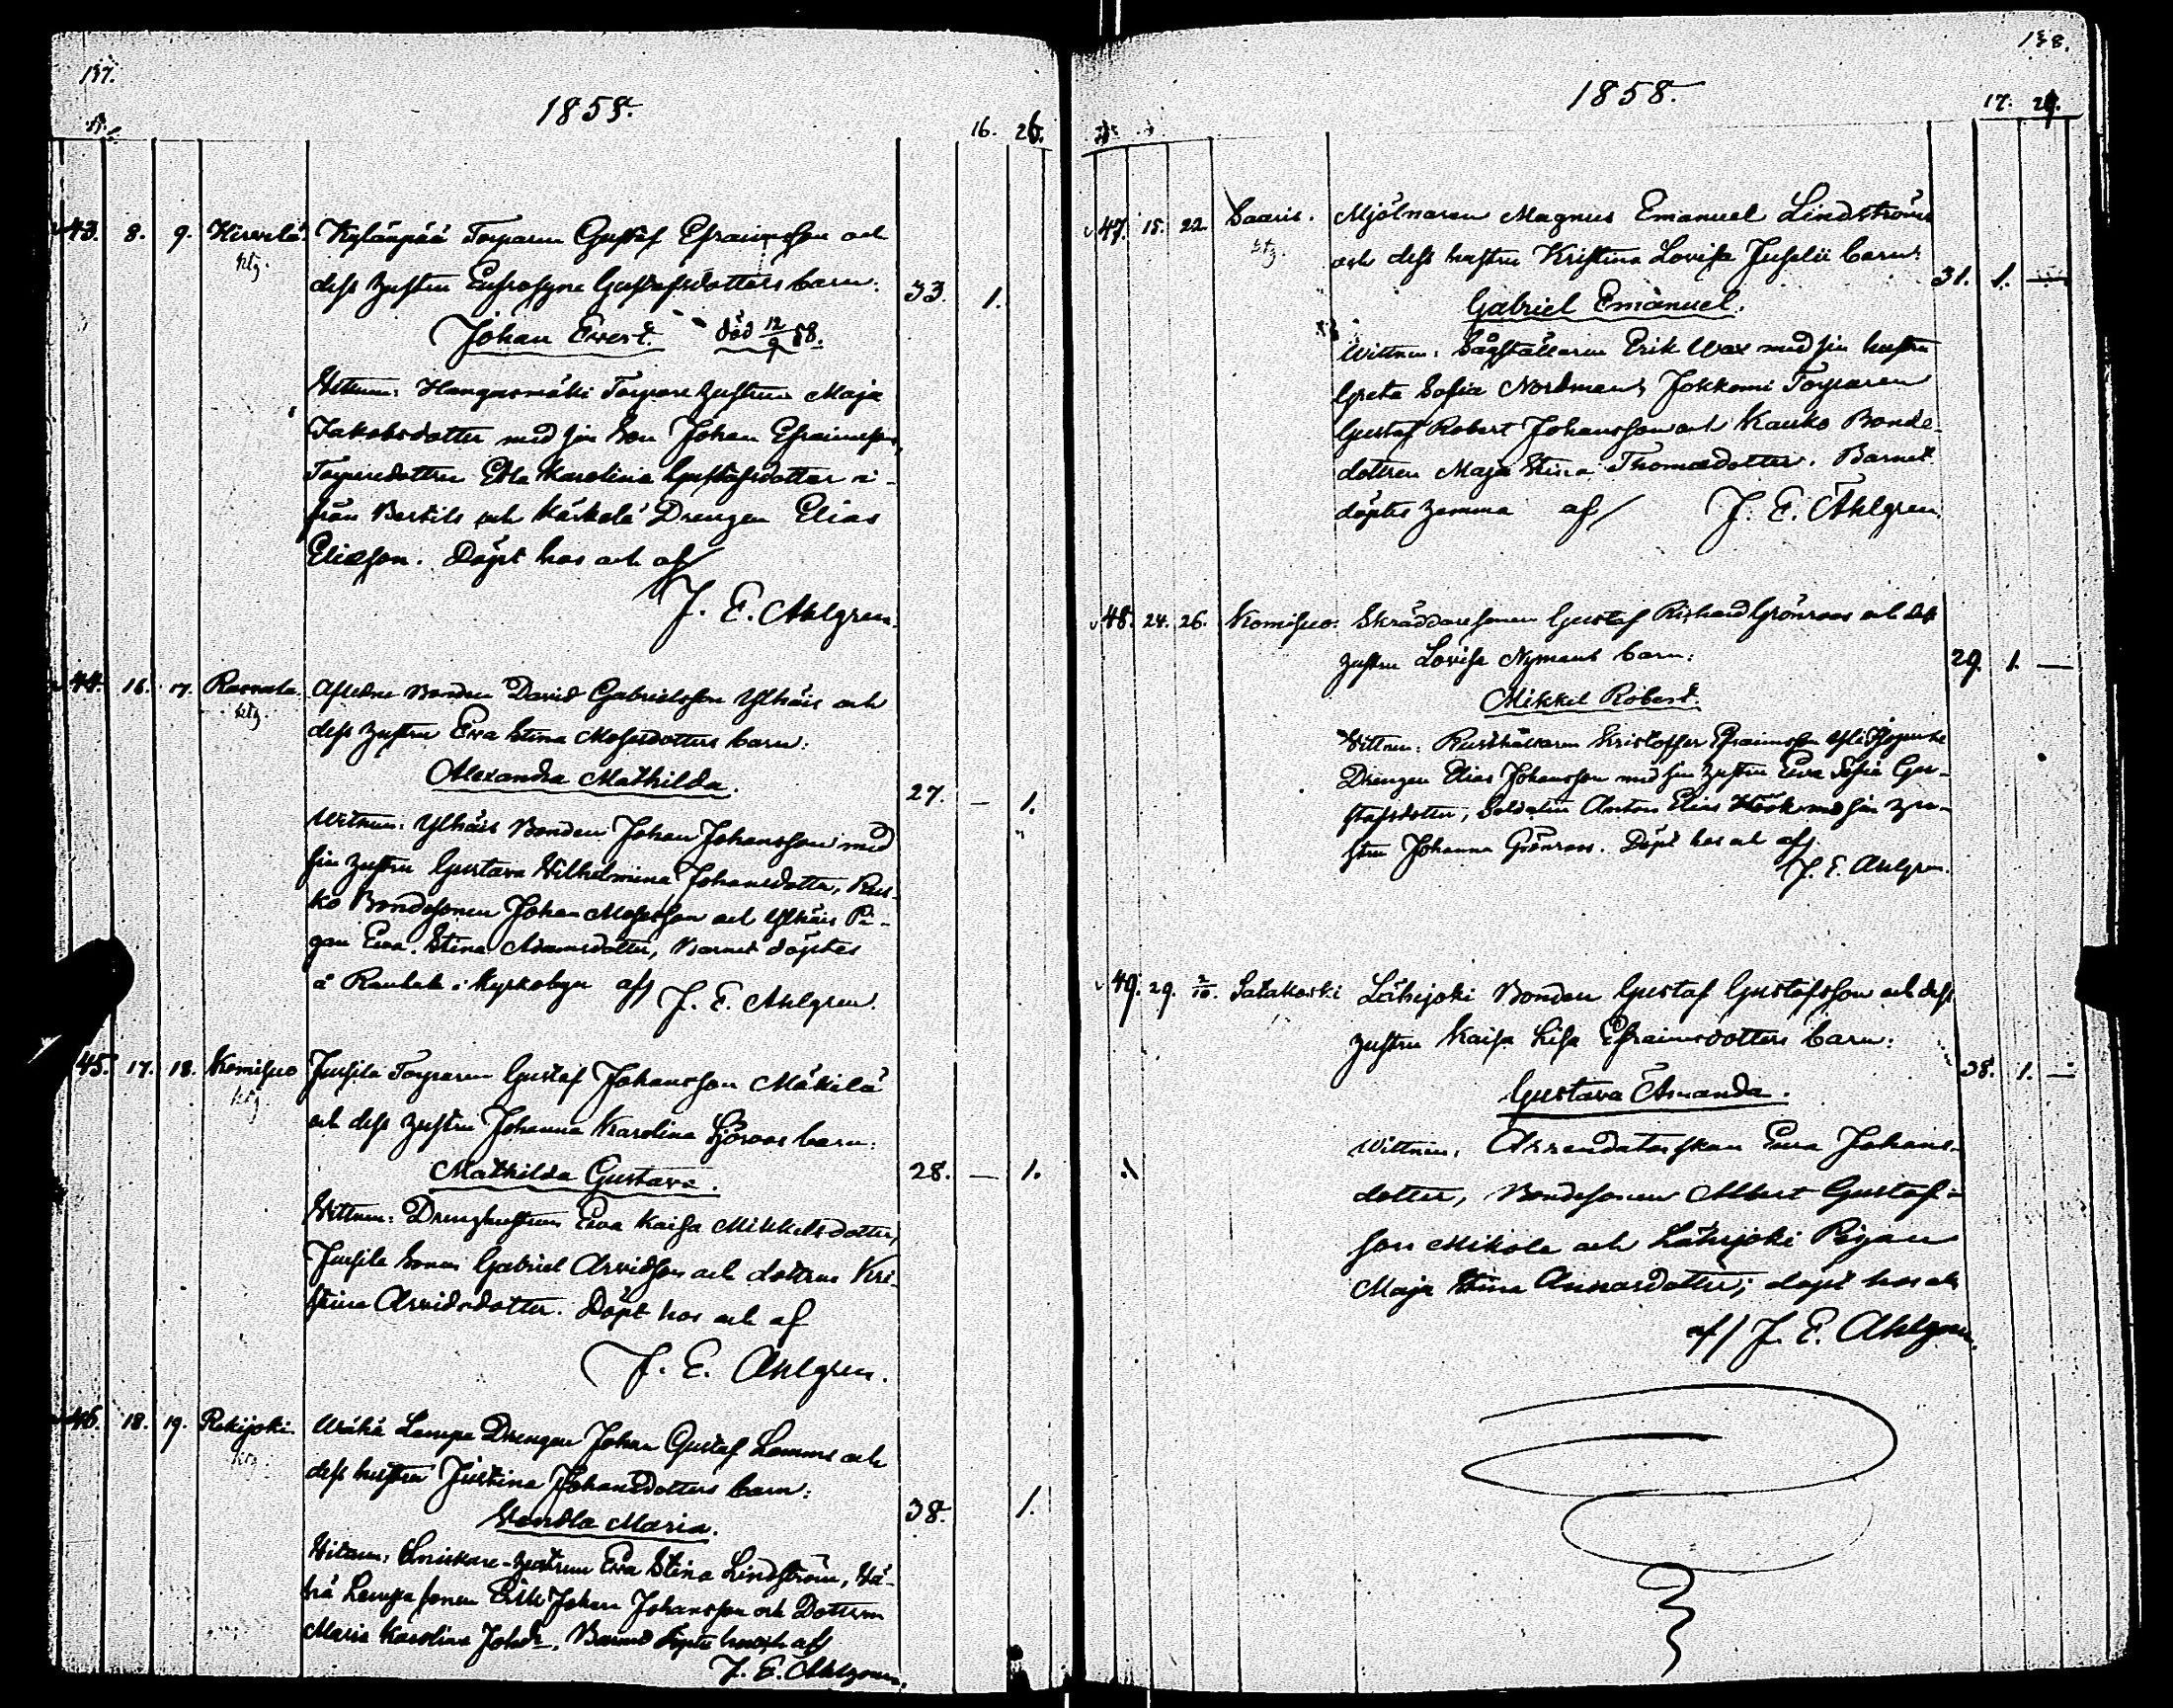 137.
1858.
16. 26.
43. 8. 9. Hirvelä Kylänpää Torparen Gustaf Efraimsson och
ktg. dess hustru Eufrosyne Gustafsdotters barn: 33. 1.
Johan Evert. död 12/9 58.
Vittnen: Hangasmäki Torpare hustrun Maja
Jakobsdotter med sin Son Johan Efraimsson,
Torparedottren Edla Karolina Gustafsdotter i-
från Bertils och Käskälä Drengen Elias
Eliasson. Döpt hos och af
J. E. Ahlgren.
44. 16. 17. Raevala Bonden David Gabrielsson Ylhäis och
ktg. dess hustru Eva Stina Mosesdotters barn:
Alexandra Mathilda. 27. — 1.
Witnen: Ylhäis Bonden Johan Johansson med
sin hustru Gustava Wilhelmina Johansdotter, Rus-
ko Bondesonen Johan Mosesson och Ylhäis Pi-
gan Eva Stina Adamsdotter, Barnet döptes
å i Kyrkobyn af J. E. Ahlgren.
45. 17. 18. Komisuo Jussila Torparen Gustaf Johansson Mäkilä
ktg. och dess hustru Johanna Karolina Sjöroos barn:
Mathilda Gustava. 28. — 1.
Vittnen: Drenghustrun Eva Kaisa Mikkelsdotter,
Jussila Sonen Gabriel Arvidsson och dottren Kri-
stina Arvidsdotter. Döpt hos och af
J. E. Ahlgren.
46. 18. 19. Rekijoki Wähä Lempa Drengen Johan Gustaf Lamms och
ktg. dess hustru Justina Johansdotters barn:
Vendla Maria. 38. 1.
Vitnen: Snickare-hustrun Eva Stina Lindström, Vä-
hä Lempa sonen Johan Johansson och Dottren
Maria Karolina Johsdr, Barnet döptes af
J. E. Ahlgren.
138.
1858.
17. 27.
47. 15. 22. Saaris. Mjölnaren Magnus Emanuel Lindströms
ktg. och dess hustru Kristina Lovisa Juselii barn: 31. 1. —
Gabriel Emanuel.
Wittnen: Sågställaren Erik Wax med sin hustru
Greta Sofia Nordman, Jokkomi Torparen
Gustaf Robert Johansson och Kauko Bonde-
dottren Maja Stina Thomasdotter. Barnet
döptes hemma af J. E. Ahlgren.
48. 24. 26. Komisuo. Skräddaresonen Gustaf Richard Grönroos och dess
hustru Lovisa Nymans barn: 29. 1. —
Mikkel Robert.
Vittnen: Rusthållaren Kristoffer Efraimsson
Drengen Elias Johansson med sin hustru Eva Sofia Gu-
stafsdotter, Soldaten Anton Elias Höök med sin hu-
stru Johanna Grönroos. Döpt hos och af
J. E. Ahlgren.
49. 29. 2/10. Satakoski Lähijoki Bonden Gustaf Gustafsson och dess
hustru Kaisa Lisa Efraimsdotters barn: 38. 1. —
Gustava Amanda.
Wittnen: Arrendatorskan Eva Johans-
dotter, Bondesonen Albert Gustafs-
son Mikola och Lähijoki Pigan
Maja Stina Annasdotter; döpt hos och
af J. E. Ahlgren.